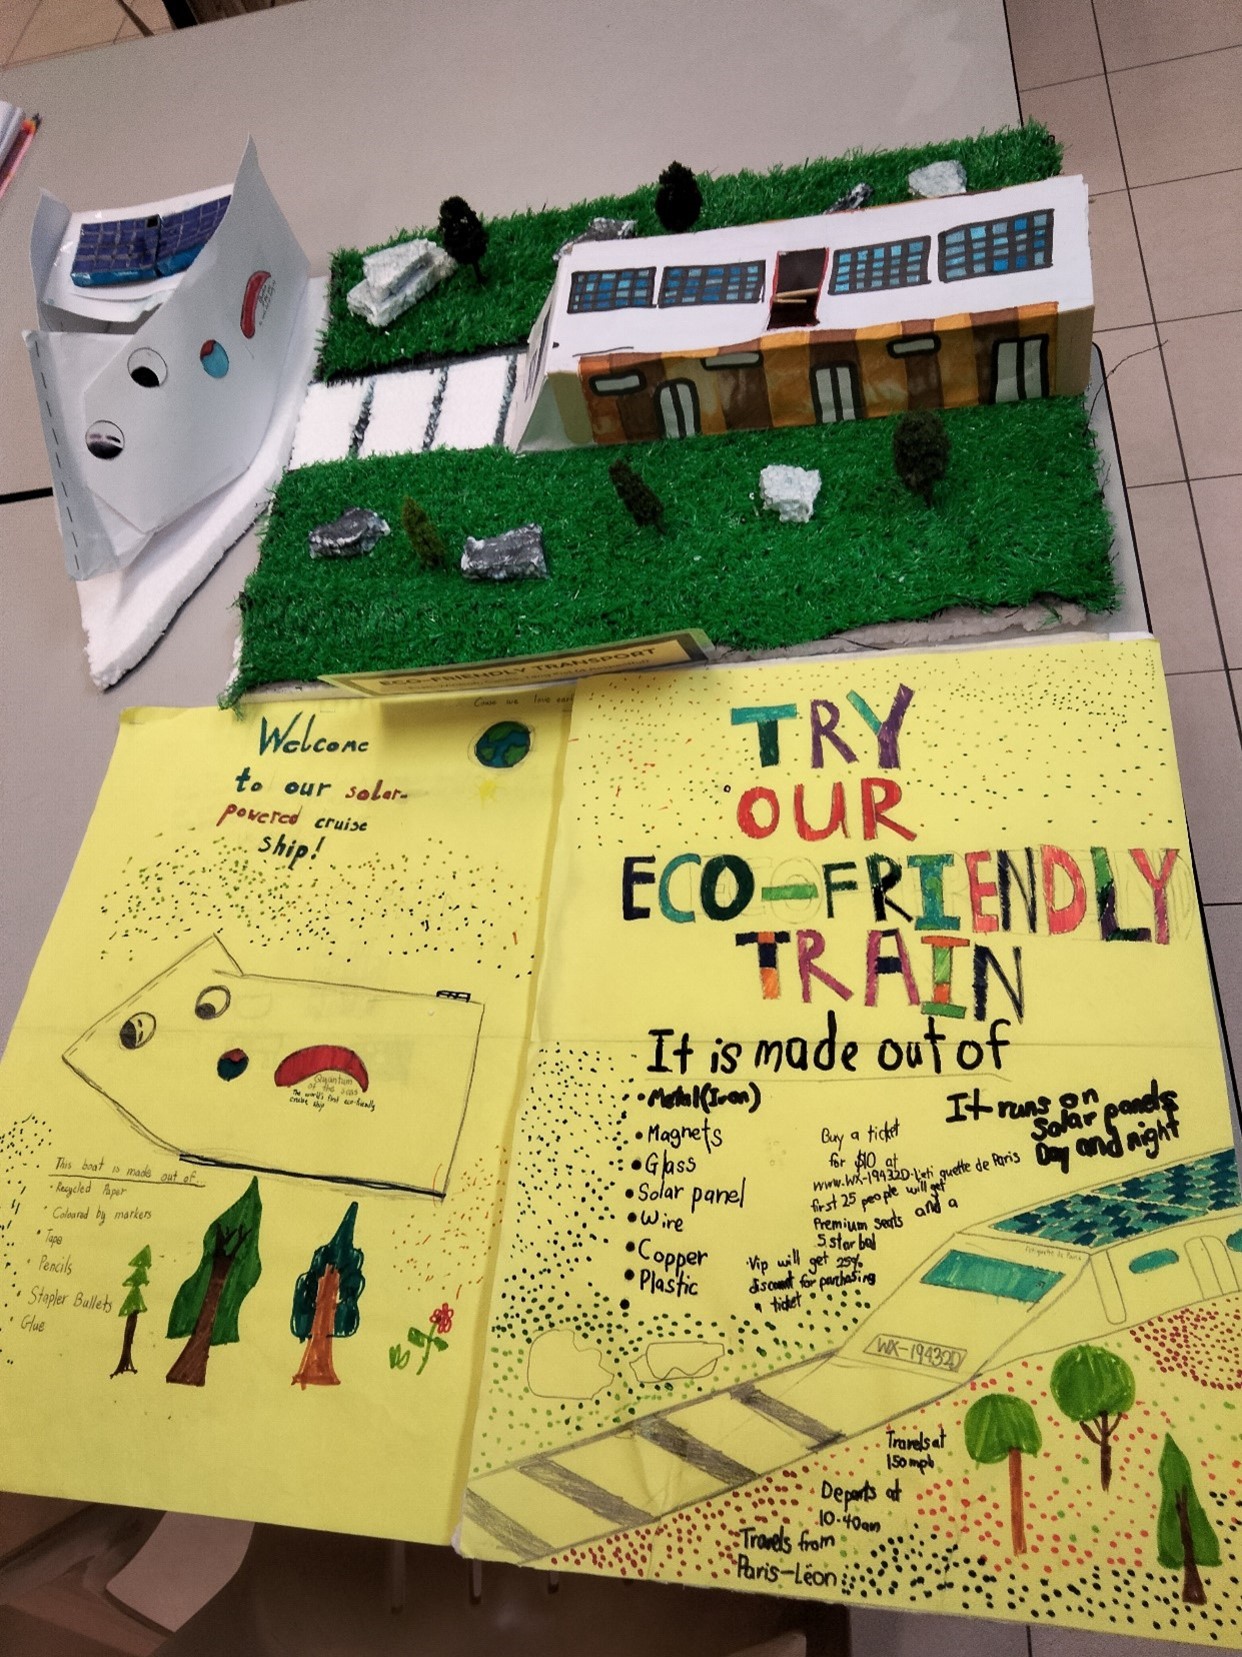 ECO-FRIENDLY TRANSPORT
Welcome
to our solar-
powered cruise
ship!
Quantum
of the
The world's first eco-friendly
cruise ship
This boat is made out of
Recycled Paper
Coloured by markers
Tape
Pencils
Stapler Bullets
Glue
TRY
OUR
ECO-FRIENDLY
TRAIN
It is made out of
Metal(Iron)
Magnets
Glass
Solar panel
Wire
Copper
Plastic
It runs on
Solar panels
Day and night
Buy a ticket
for $10 at
www.WX-19432D-L'eti quette de Paris
first 25 people will get
Premium seats and a
5 star bed
Vip will get 25%
discount for purchasing
a ticket
WX-19432D
Travels at
150mph
Departs at
10:40am
Travels from
Paris-Léon